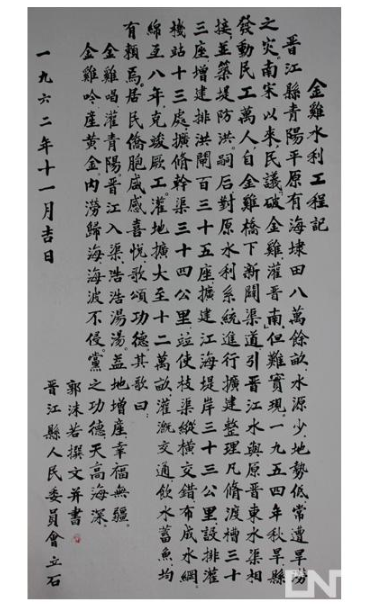 金雞水利工程記
晋江縣青陽平原有海埭田八萬餘畝水源少地勢低常遭旱澇
之災南宋以來民議破金雞灌晋南但難實現一九五四年秋旱縣
發動民工萬人自金雞橋下新闢渠道引晋江水與原晋東水渠相
接並築堤防洪嗣后對原水利系統進行擴建整理凡脩渡槽三十
三座增建排洪閘百三十五座擴建江海堤岸三十三公里設排灌
機站十三處擴脩幹渠三十四公里並使枝渠縱横交錯布成水網
綿亙八年克竣厥工灌地擴大至十二萬畝灌溉交通飲水蓄魚均
有賴焉居民僑胞咸感喜悅歌頌功德其歌曰
金雞唱灌青陽晋江入渠浩浩湯湯益地增座幸福無疆
金雞吟座黄金内澇歸海海波不侵黨之功德天高海深
郭沫若撰文并書
一九六二年十一月吉日
晋江縣人民委員會立石